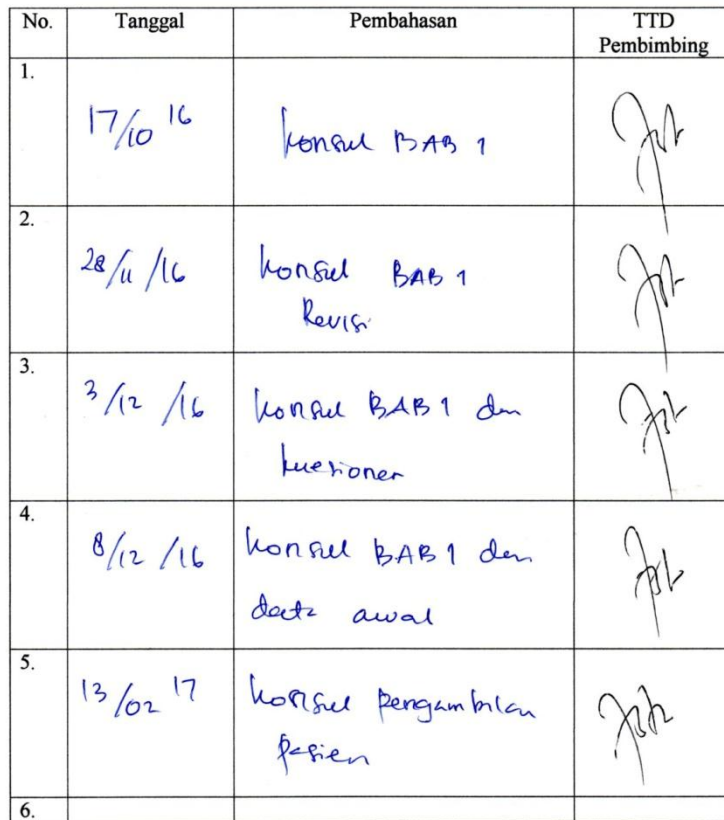 No. Tanggal Pembahasan TTD
Pembimbing
1.
17/10 16 konsul BAB 1
2.
28/11/16 konsul BAB 1
Revisi
3.
3/12/16 konsul BAB 1 dan
kuesioner
4.
8/12/16 konsul BAB 1 dan
data awal
5.
13/02 17 konsul pengambilan
pasien
6.